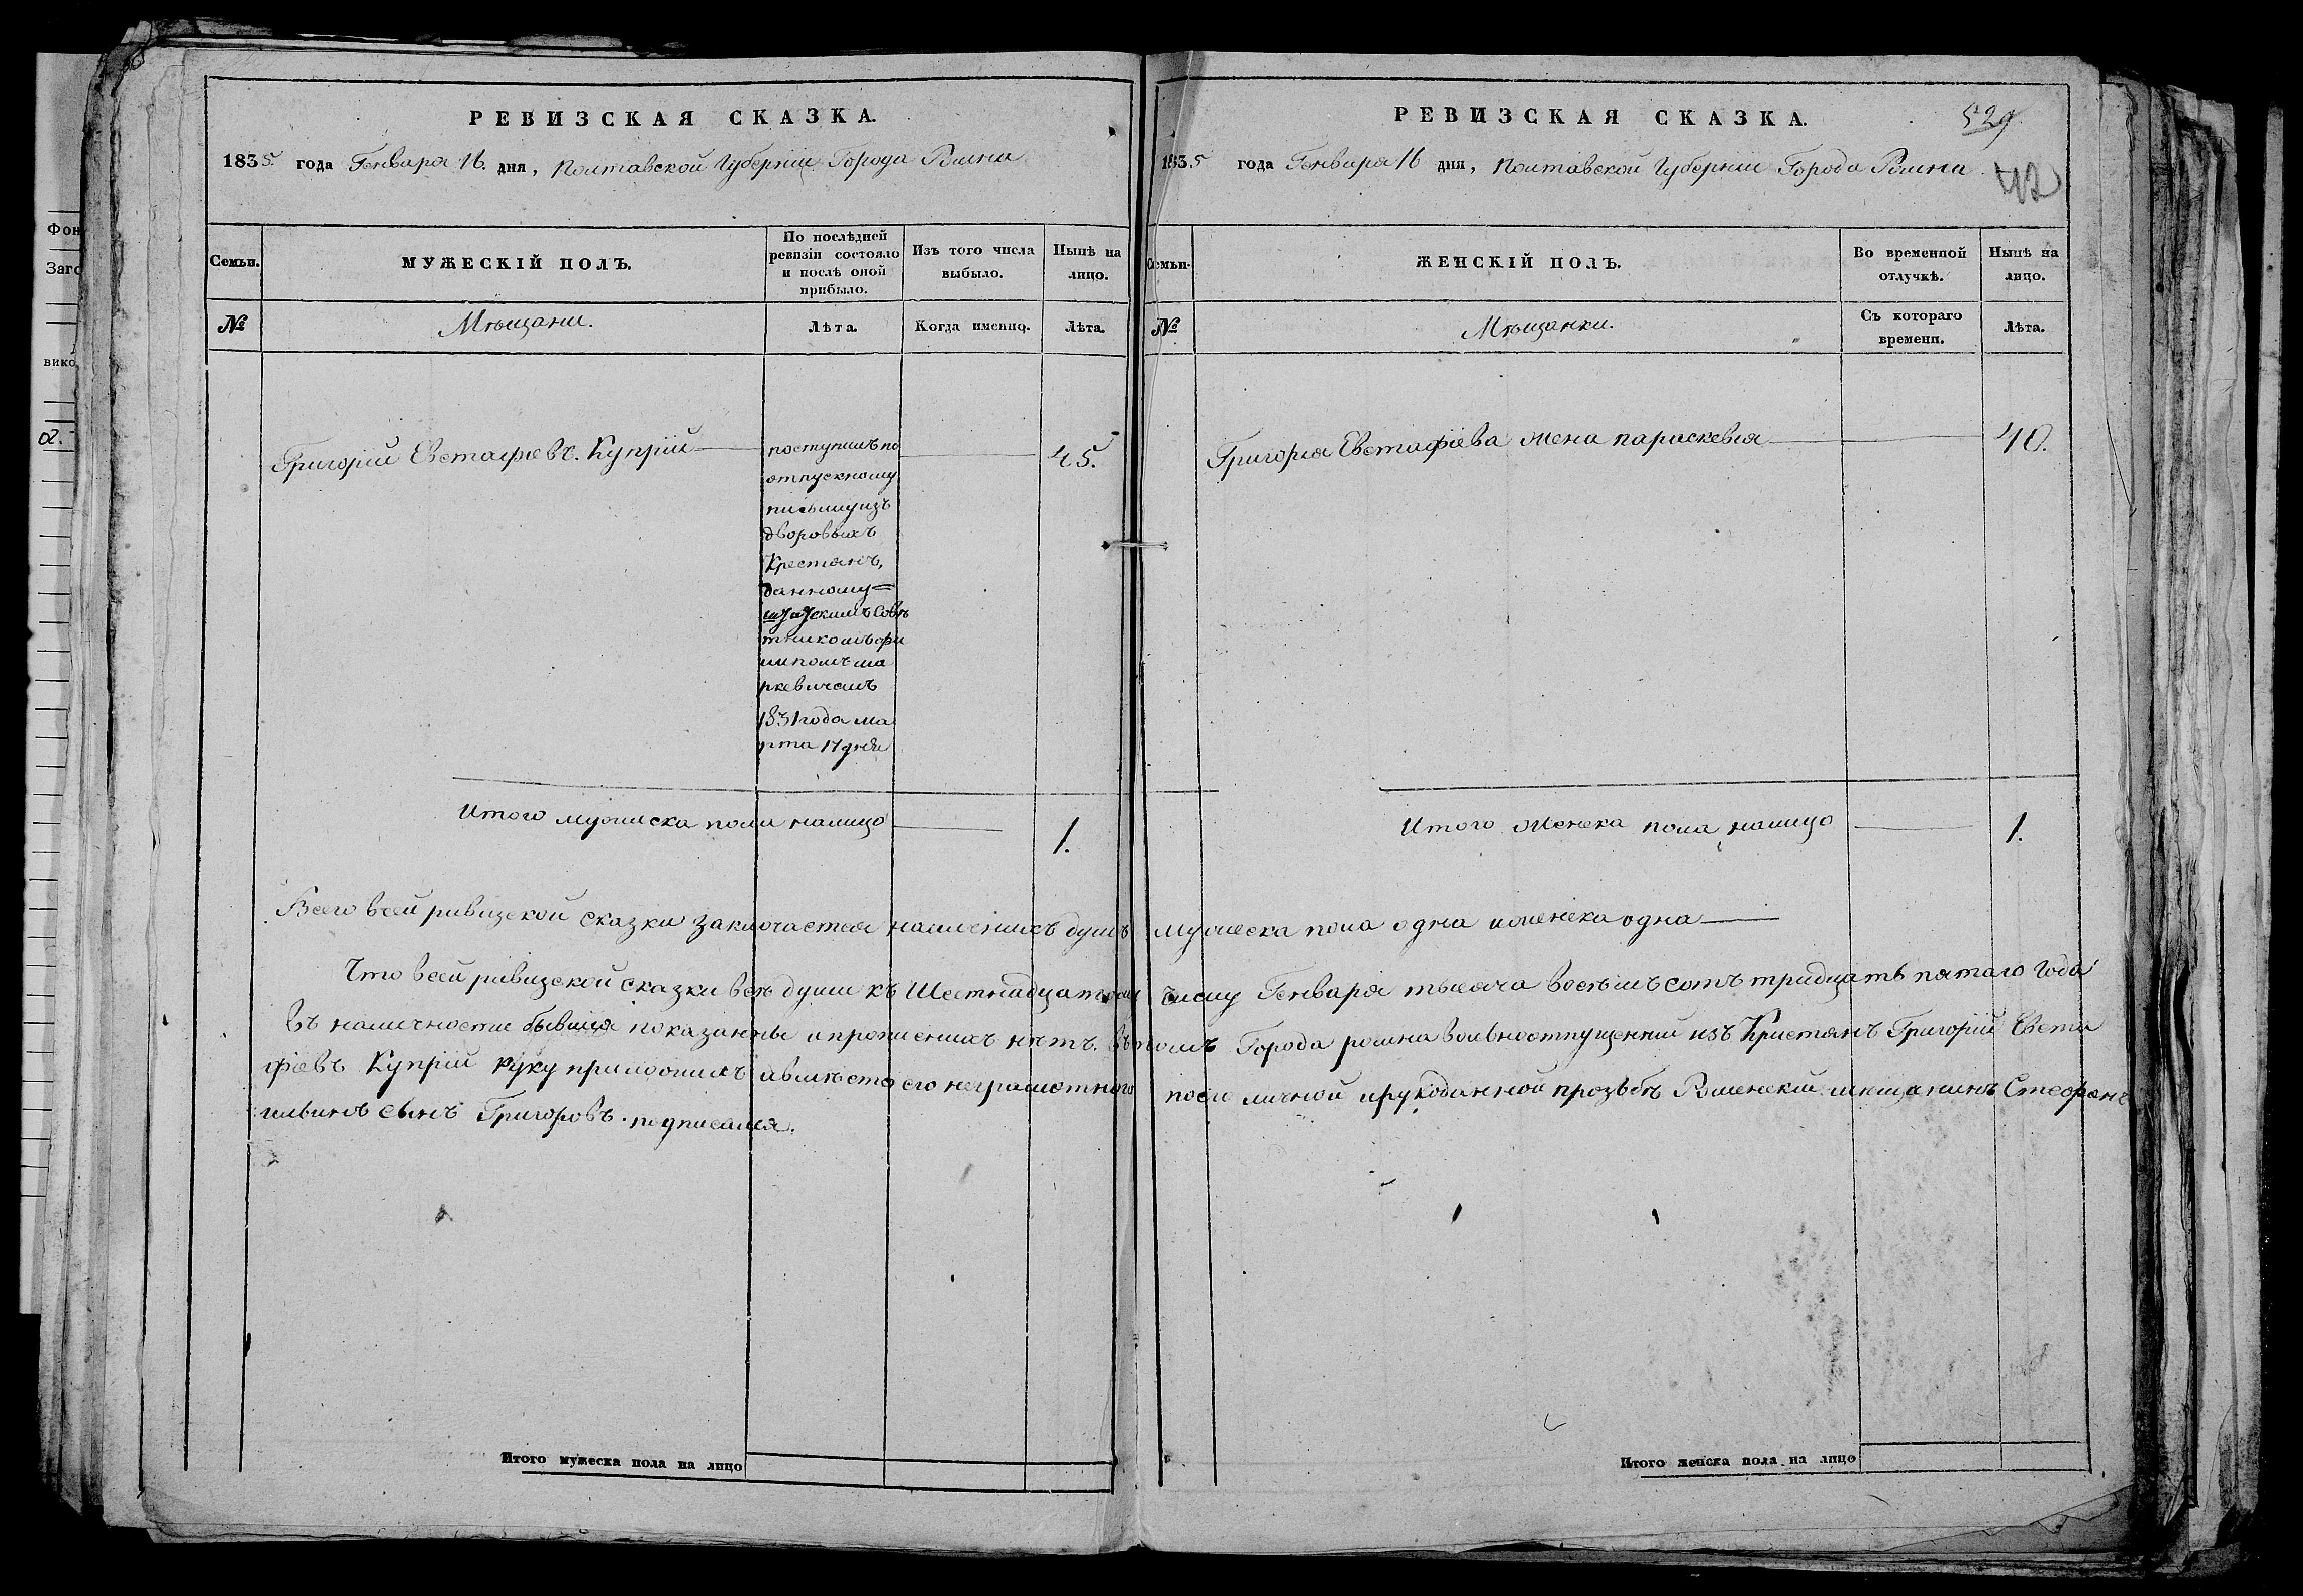 Фон
Заго
вико
02.
РЕВИЗСКАЯ СКАЗКА.
1835. года Генваря 16. дня, Полтавской Губернiи Города Ромна
Семьи.
МУЖЕСКІЙ ПОЛЪ.
По послѣдней
ревизіи состояло
и послѣ оной
прибыло.
Изъ того числа
выбыло.
Нынѣ на
лицо.
№
Мѣщани.
Лѣта.
Когда именно.
Лѣта.
Григорій Евстафіевъ. Купрій
поступилъ по
отпускному
письму изъ
дворовыхъ
Крестянъ,
данному
Совѣ
тникомъ фи
липомъ ма
ркевичемъ
1831 года ма
рта 17 дня
45.
Итого мужеска пола налицо
1.
РЕВИЗСКАЯ СКАЗКА.
529
42
1835 года Генваря 16 дня, Полтавской Губернiи Города Ромна
Семьи.
ЖЕНСКІЙ ПОЛЪ.
Во временной
отлучкѣ.
Нынѣ на
лицо.
№
Мѣщанки.
Съ котораго
времени.
Лѣта.
Григорія Евстафіева жена параскевія
40.
Итого женска пола налицо
1.
Всего всей ривизской сказки заключается наличнихъ душъ мужеска пола одна иженска одна
Что всей ривизской сказки всѣ души къ Шестнадцатому числу Генваря тысяча восѣмъсотъ тридцать пятаго Года
въ наличности бывшія показанны ипрописнихъ нѣтъ. Города ромна волвноотпущенний изъ Кристянъ Григорій Евста
фіевъ Купрій руку приложилъ авмѣсто его неграмотного поего личной ирукоданной прозбѣ Роменскій мѣщанинъ Стефанъ
сынъ Григоровъ. подписался.
Итого мужеска пола на лицо
Итого женска пола на лицо